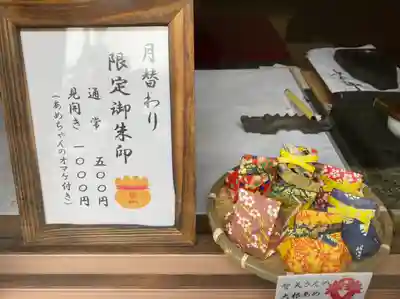 月替わり
限定御朱印
通常 五〇〇円
見開き 一〇〇〇円
(あめちゃんのオマケ付き)
大根あめ